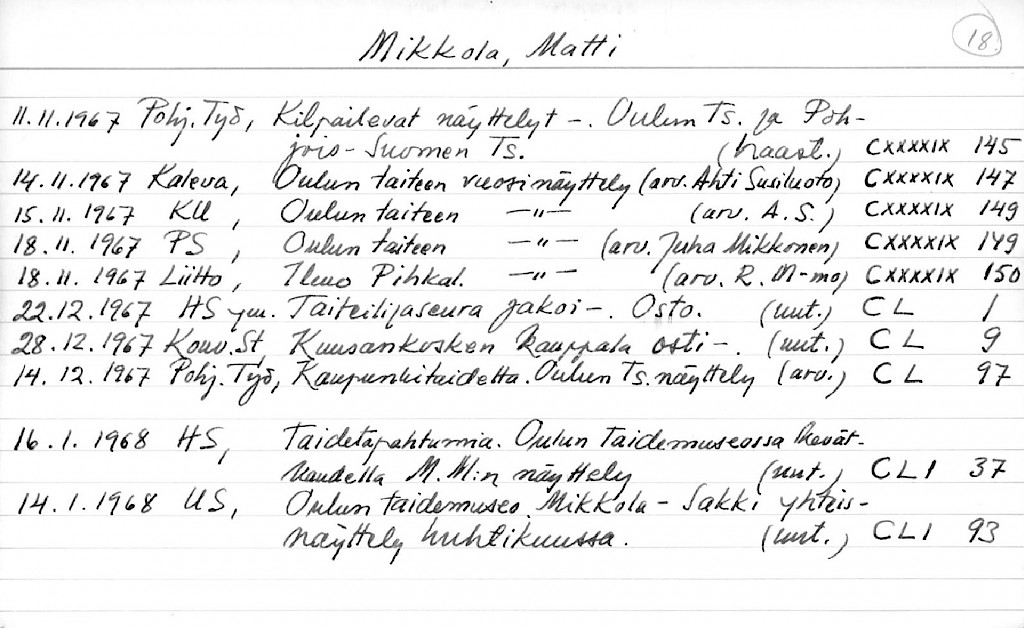 18.
Mikkola, Matti
11.11.1967 Pohj. Työ, Kilpailevat näyttelyt -. Oulun Ts. ja Poh-
jois-Suomen Ts. (haast.) CXXXXIX 145
14.11.1967 Kaleva, Oulun taiteen vuosinäyttely (arv. Ahti Susiluoto) CXXXXIX 147
15.11.1967 KU, Oulun taiteen —"— (arv. A. S.) CXXXXIX 149
18.11.1967 PS, Oulun taiteen —"— (arv. Juha Mikkonen) CXXXXIX 149
18.11.1967 Liitto, Ilmo Pihkal. —"— (arv. R. M-mo) CXXXXIX 150
22.12.1967 HS ym. Taiteilijaseura jakoi -. Osto. (uut.) CL 1
28.12.1967 Kouv. St, Kuusankosken kauppala osti -. (uut.) CL 9
14.12.1967 Pohj. Työ, Kaupunkitaidetta. Oulun Ts. näyttely (arv.) CL 97
16.1.1968 HS, Taidetapahtumia. Oulun taidemuseossa kevät-
kaudella M. M:n näyttely (uut.) CLI 37
14.1.1968 US, Oulun taidemuseo. Mikkola - Sakki yhteis-
näyttely huhtikuussa. (uut.) CLI 93